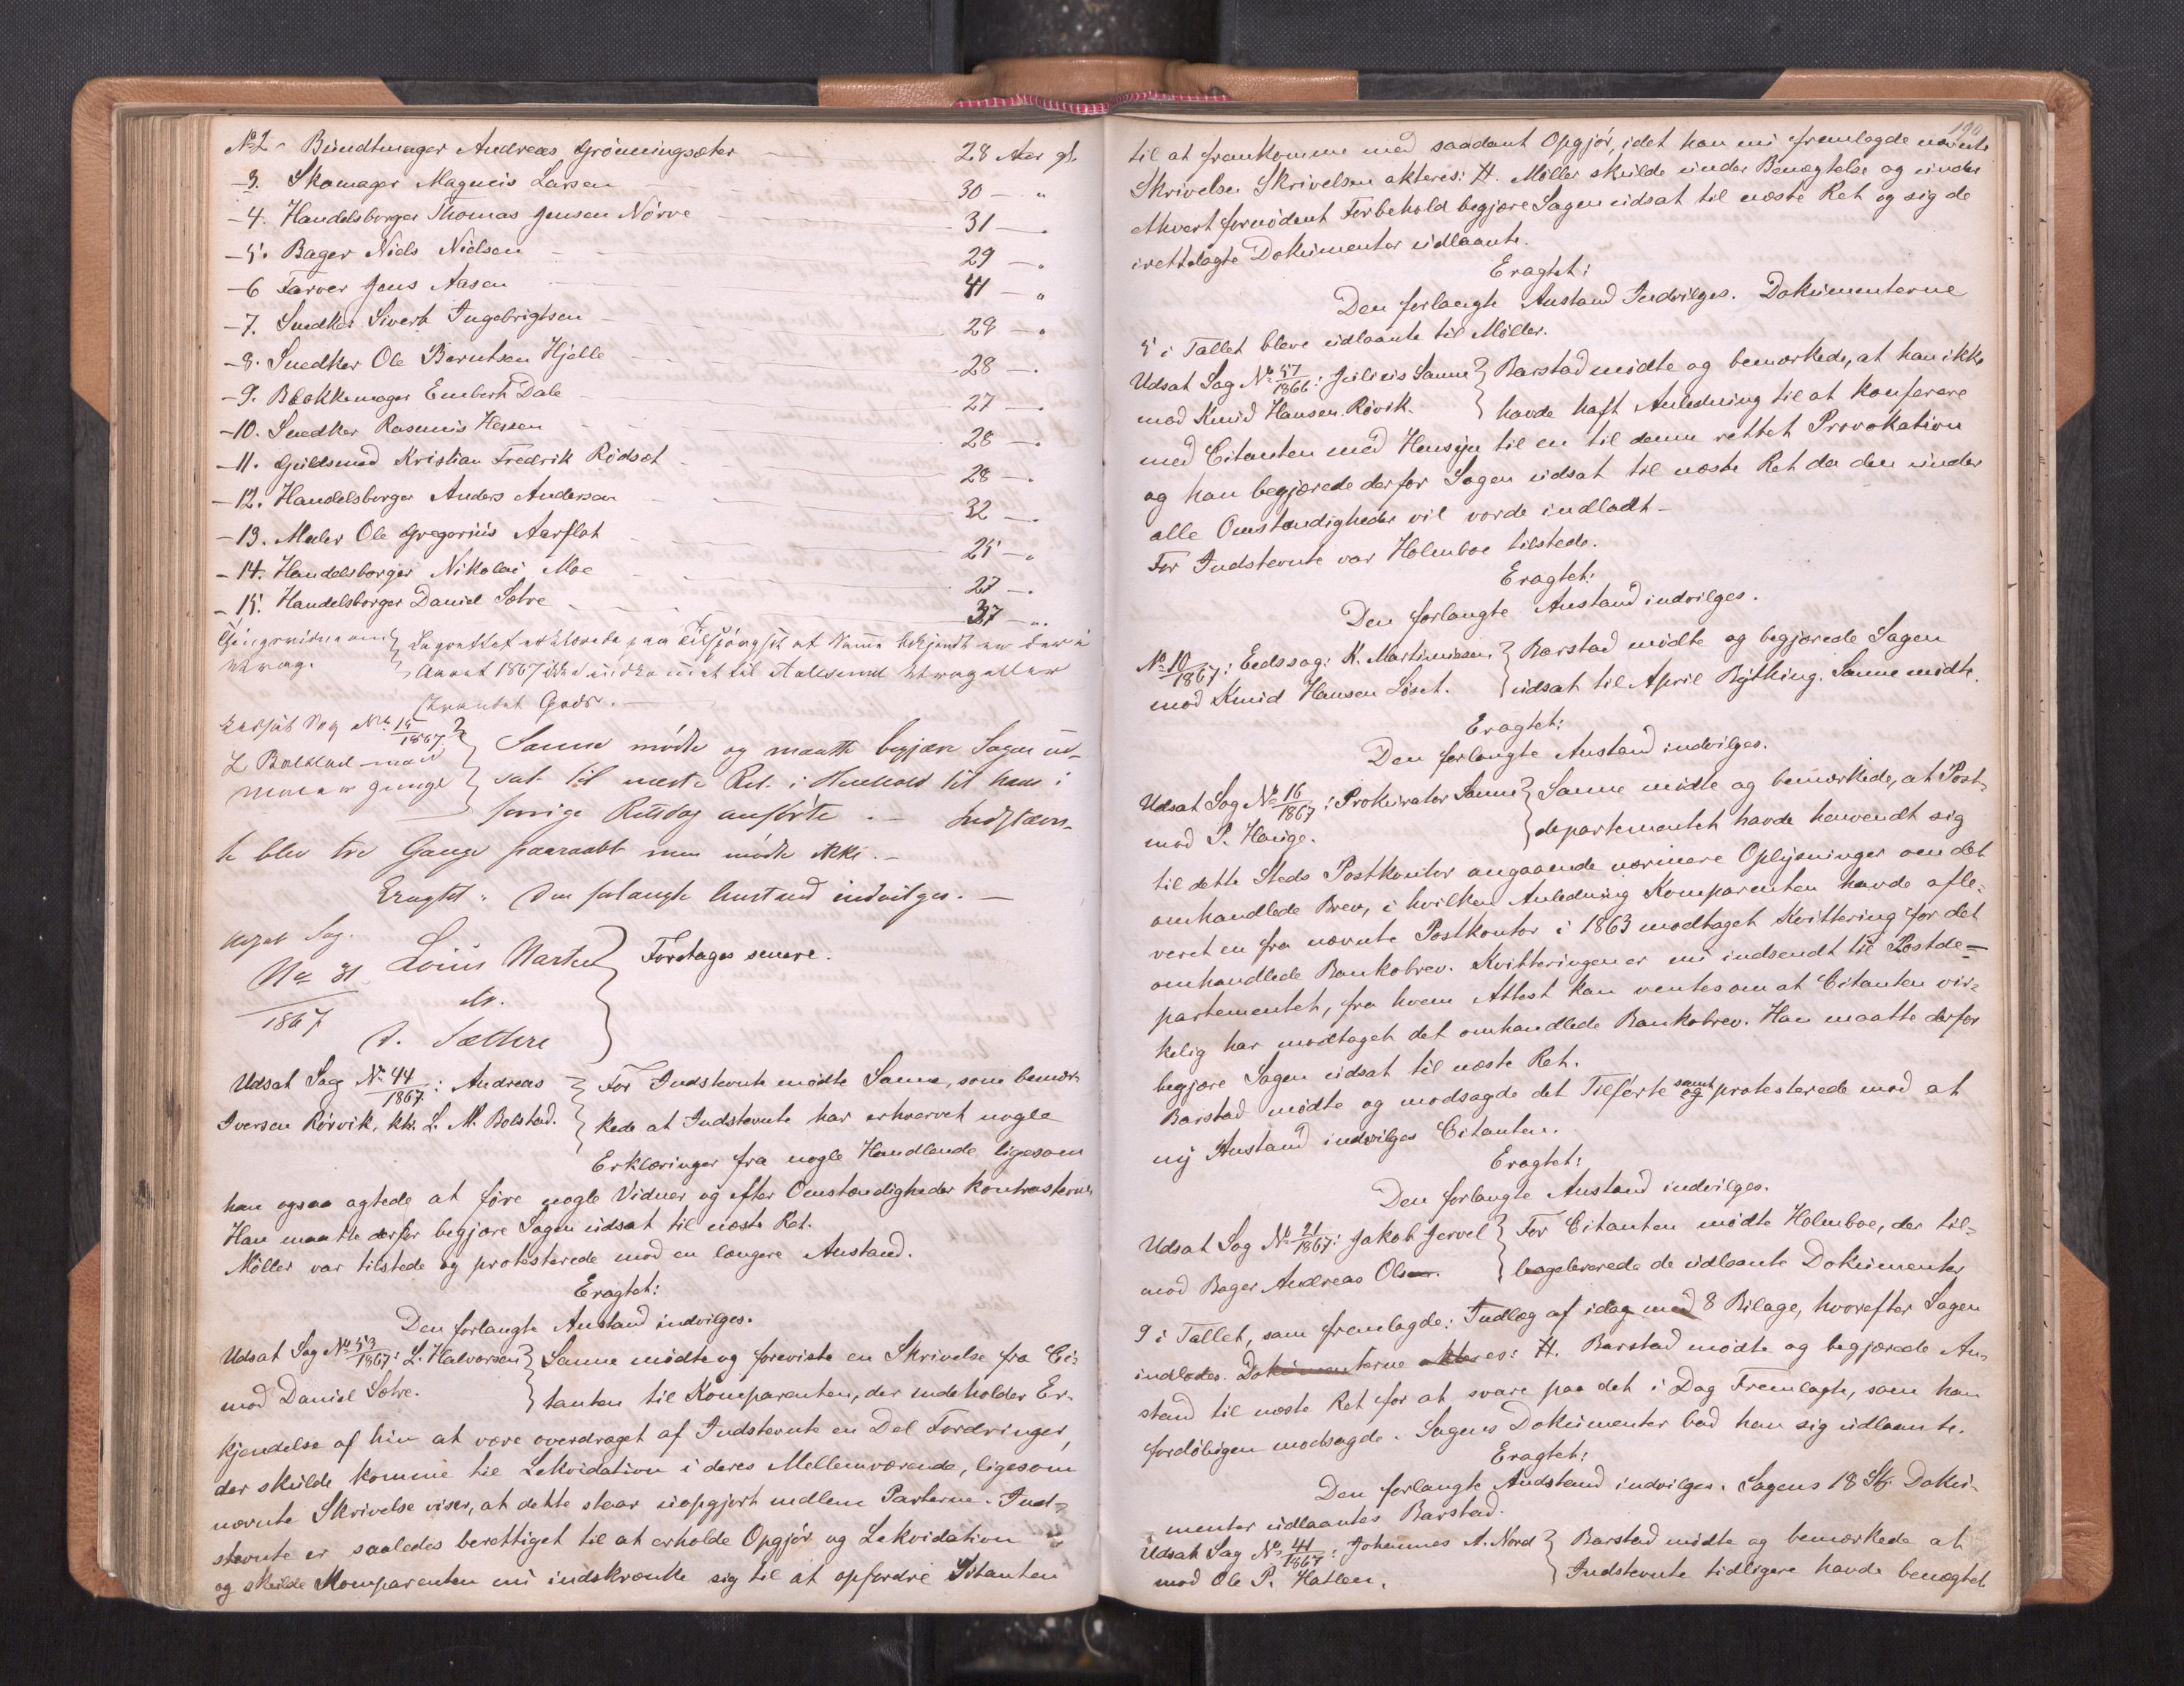 No 2 - Bundtmager Andreas Grönningsæter 28 Aar gl.
- 3. Skomager Magnus Larsen 30 - "
- 4. Handelsborger Thomas Jensen Nörve 31 - "
- 5. Bager Niels Nielsen 29 - "
- 6 Farver Jens Aasen 41 - "
- 7. Snedker Sivert Ingebrigtsen 28 - "
- 8. Snedker Ole Berntsen Hjelle 28 - "
- 9. Blokkemager Embert Dale 27 - "
- 10. Snedker Rasmus Hessen 28 - "
- 11. Guldsmed Kristian Fredrik Rödset 28 - "
- 12. Handelsborger Anders Andersen 32 - "
- 13. Maler Ole Gregorius Aarflot 25 - "
- 14. Handelsborger Nikolai Moe 27 - "
- 15. Handelsborger Daniel Sætre 37 - "
Lagrettet erklærede paa Tilspörgsel at Namn bekjendt er der i
Aaret 1867 ikke indkommet til Aalesund Vrag eller
strandet Gods. -
Udsat Sag No. 15/1867
L Bolstad mod } Sanne mödte og maatte begjære Sagen ud-
sat til næste Ret i Henhold til hans i
forrige Retsdag anförte. - Indstævn-
te blev tre Gange paaraabt men mödte ikke. -
Eragtet: Den forlangte Anstand indvilges. -
Udsat Sag.
No 31 Louis Narten } Foretages senere.
1867 ctr.
D. Sættere
Udsat Sag No 44/1867: Andreas } For Indstevnte mödte Sanne, som bemær-
Iversen Rörvik, ktr. L. M. Bolstad. } kede at Indstevnte har erhvervet nogle
Erklæringer fra nogle Handlende, ligesom
han ogsaa agtede at före nogle Vidner og efter Omstændigheder kontrastevne
Han maatte derfor begjære Sagen udsat til næste Ret.
Möller var tilstede og protesterede mod en længere Anstand.
Eragtet:
Den forlangte Anstand indvilges.
Udsat Sag No 53/1867: L. Halvorsen } Sanne mödte og foreviste en Skrivelse fra Ci-
mod Daniel Sætre. } tanten til Komparenten, der indeholder Er-
kjendelse af hin at være overdraget af Indstevnte en Del Fordringer,
der skulde komme til Lekvidation i deres Mellemværende, ligesom
nævnte Skrivelse viser, at dette staar uopgjort mellem Parterne. Ind-
stevnte er saaledes berettiget til at erholde Opgjör og Lekvidation
og skulde Komparenten nu indskrænke sig til at opfordre Citanten
190
til at fremkomme med saadant Opgjör, idet han nu fremlagde nævnte
Skrivelse. Skrivelsen akteres: #. Möller skulde under Benægtelse og under
ethvert fornödent Forbehold begjære Sagen udsat til næste Ret og sig de
irettelagte Dokumenter udlaante.
Eragtet:
Den forlangte Anstand Indvilges. Dokumenterne
5 i Tallet bleve udlaante til Möller.
Udsat Sag No 57/1866: Julius Sanne } Barstad mödte og bemærkede, at han ikke
mod Knud Hansen Rövik. } havde haft Anledning til at konferere
med Citanten med Hensyn til en til denne rettet Provokation
og han begjærede derfor Sagen udsat til næste Ret da den under
alle Omstændigheder vil vorde indladt -
For Indstevnte var Holmboe tilstede.
Eragtet:
Den forlangte Anstand indvilges.
No 10/1867: Eedssag: K. Martinusen } Barstad mödte og begjærede Sagen
mod Knud Hansen Löset. } udsat til April Bything. Sanne mödte.
Eragtet:
Den forlangte Anstand indvilges.
Udsat Sag No 16/1867: Prokurator Sanne } Sanne mödte og bemærkede, at Post-
mod P. Hauge. } departementet havde henvendt sig
til dette Steds Postkontor angaaende nærmere Oplysninger om det
omhandlede Brev, i hvilken Anledning Komparenten havde afle-
veret en fra nævnte Postkontor i 1863 modtaget Kvittering for det
omhandlede Bankobrev. Kvitteringen er nu indsendt til Postde-
partementet, fra hvem Attest kan ventes om at Citanten vir-
kelig har modtaget det omhandlede Bankobrev. Han maatte derfor
begjære Sagen udsat til næste Ret.
Barstad mödte og modsagde det Tilförte samt protesterede mod at
ny Anstand indvilges Citanten.
Eragtet:
Den forlangte Anstand indvilges.
Udsat Sag No 21/1867: Jakob Jervel } For Citanten mödte Holmboe, der til-
mod Bager Andreas Olsen. } bageleverede de udlaante Dokumenter
9 i Tallet, som fremlagde: Indlæg af idag med 8 Bilage, hvorefter Sagen
indlodes. Dokumenterne akteres: #. Barstad mödte og begjærede An-
stand til næste Ret for at svare paa det i Dag Fremlagte, som han
forelöbigen modsagde. Sagens Dokumenter bad han sig udlaante.
Eragtet:
Den forlangte Andstand indvilges. Sagens 18 Stk Doku-
menter udlaantes Barstad.
Udsat Sag No 41/1867: Johannes A. Nord } Barstad mödte og bemærkede at
mod Ole P. Hatlen. } Indstevnte tidligere havde benægtet